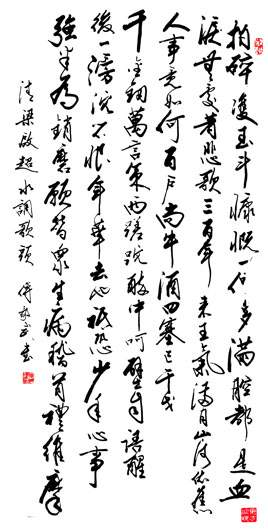 拍碎雙玉斗慷慨一何多滿腔都是血
淚無處著悲歌三百年来王氣滿目山河依舊
人事竟如何百户尚牛酒四塞已干戈
千金劍萬言策兩蹉跎醉中呵壁自語醒
後一滂沱不恨年華去也祗恐少年心事
強半為銷磨願替眾生病稽首禮維摩
清梁啟超水調歌頭 書